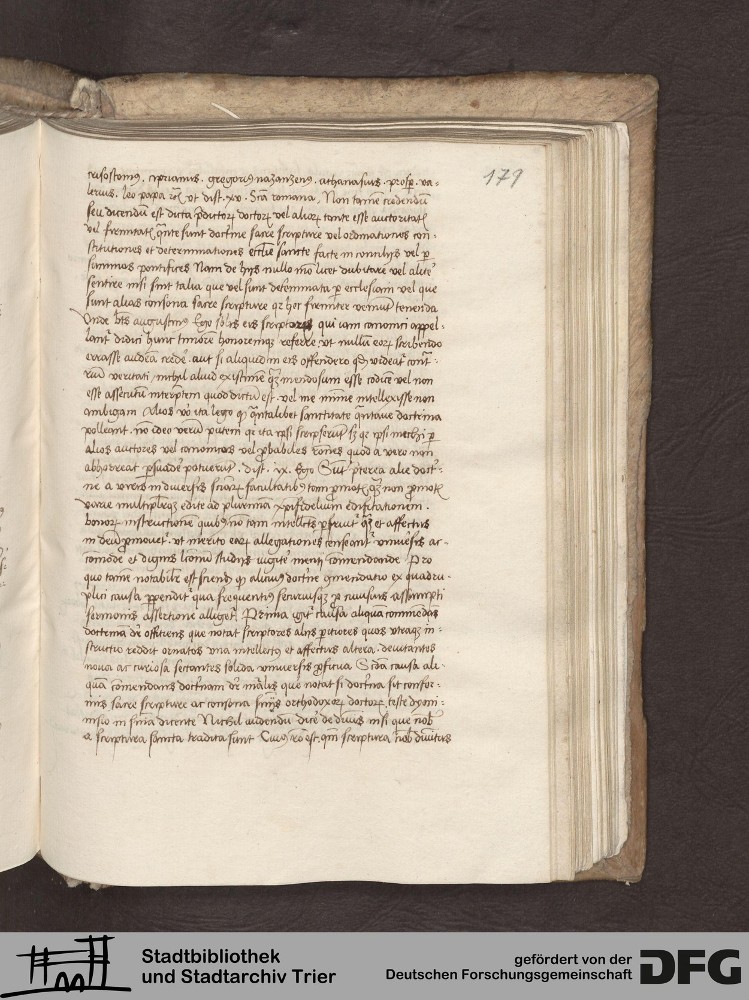 179
crisostomus. ciprianus. gregorius nazanzenus. athanasius. prosper. va-
lerius. leo papa
seu dicendum est dicta predictorum doctorum vel aliorum tante esse auctoritatis
vel firmitatis quante sunt doctrine sacre scripture vel ordinationes con-
stitutiones et determinationes ecclesie sancte facte in concilijs vel per
summos pontifices Nam de hijs nullo modo licet dubitare vel aliter
sentire nisi sint talia que vel sunt determinata per ecclesiam vel que
sunt alias consona sacre scripture
Unde beatus augustinus Ego solis eis scriptoribus qui iam canonici appel-
lantur didici hunc timorem honoremque referre, ut nullum eorum scribendo
errasse audeam credere. aut si aliquid in eis offendero quod videatur contra-
rium veritati, nichil aliud existimem quam mendosum esse codicem vel non
esse assecutum interpretem quod dictum est. vel me minime intellexisse non
ambigam Alios vero ita lego quod quantalibet sanctitate quantave doctrina
polleant. non ideo verum putem quia ita ipsi scripserunt sed quia ipsi mechi per
alios auctores vel canonicas vel probabiles rationes quod a vero non
abhorreat persuadere potuerunt. dist. ix. Ego Sunt preterea alie doctri-
ne a viris in diversis scienciarum facultatibus tam promotis quam non promotis
varie multipliciterque edite ad plurimam christifidelium edificationem.
bonorum instructionem quibus non tam intellectus perficitur quam et affectus
in deum promovetur. ut merito earum allegationes censeantur universis ac-
comode et dignis licitum studijs iugiter menti comendande Pro
quo tamen notabiliter est sciendum quod alicuius doctrine commendatio ex quadru-
plici causa perpenditur qua frequentius securiusque pro cuiusvis assumpti
sermonis assertione allegetur. Prima igitur causa aliquam commendans
doctrinam dicitur efficiens que notat scriptores alijs peritiores quos utraque in-
structio reddit ornatos una intellectus et affectus altera. devitantes
nova ac curiosa sectantes solida universis proficua Secunda causa ali-
quam comendans doctrinam dicitur materialis que notat si doctrina sit confor-
mis sacre scripture ac consona sentencijs orthodoxorum doctorum, teste dyoni-
nisio in sentencia dicente Nichil audendum dicere de divinis nisi que nobis
a scriptura sancta tradita sunt Cuius ratio est. quoniam scriptura nobis divinitus
Stadtbibliothek
und Stadtarchiv Trier
gefördert von der
Deutschen Forschungsgemeinschaft
DFG